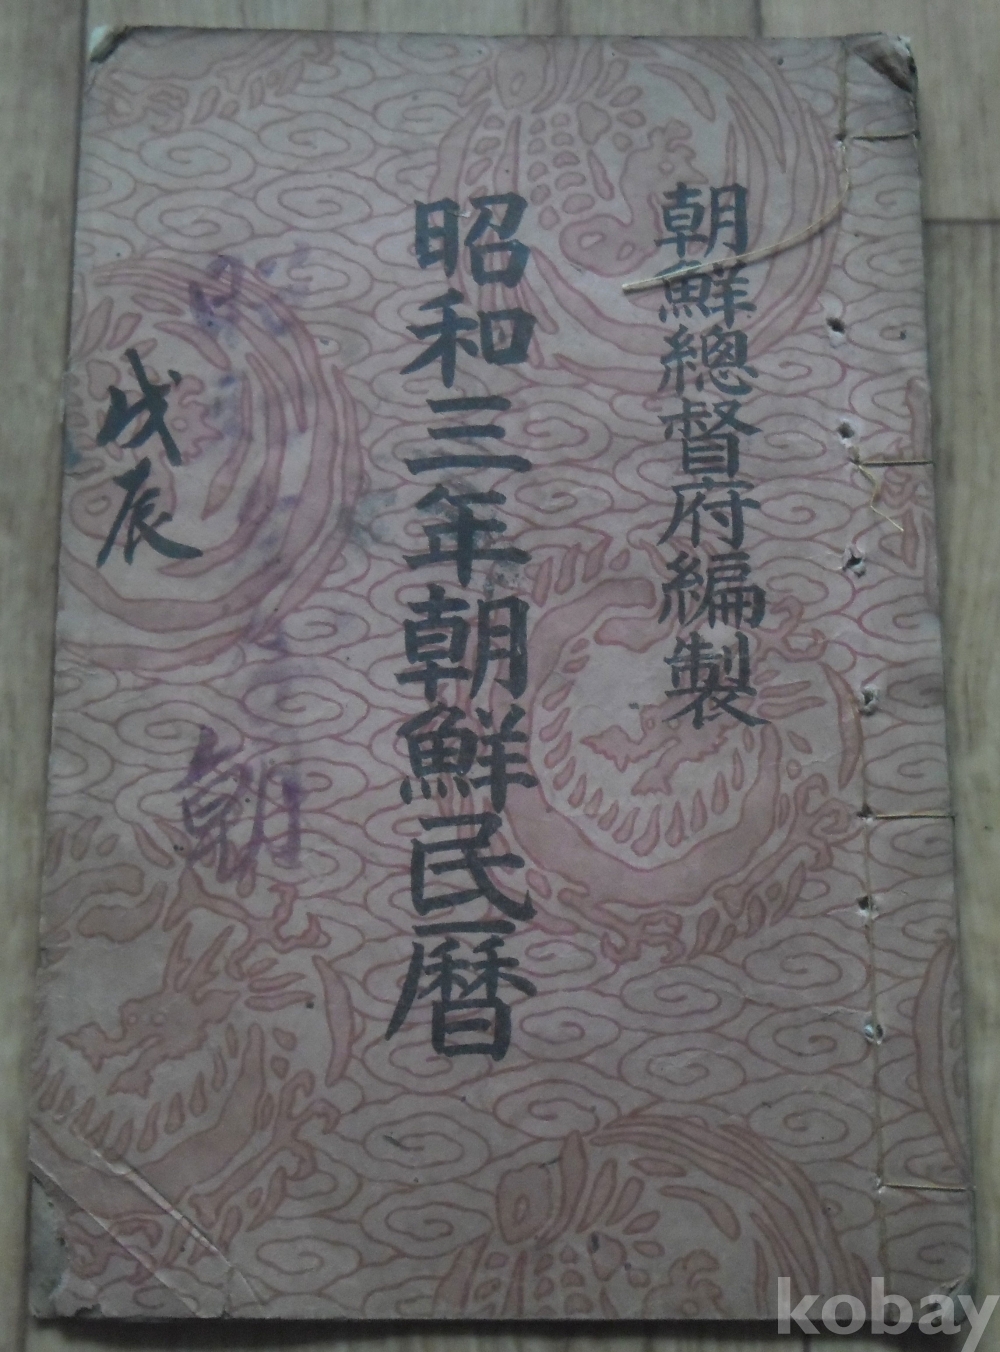 朝鮮總督府編製
昭和三年朝鮮民暦
朝
戊辰
kobay